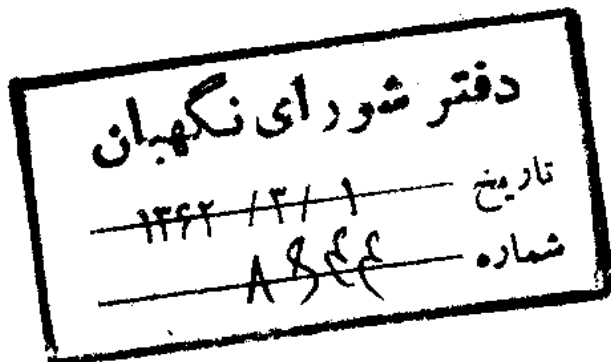 دفتر شورای نگهبان
تاریخ ۱۳۶۲ / ۳ / ۱
شماره ۸۹۴۴